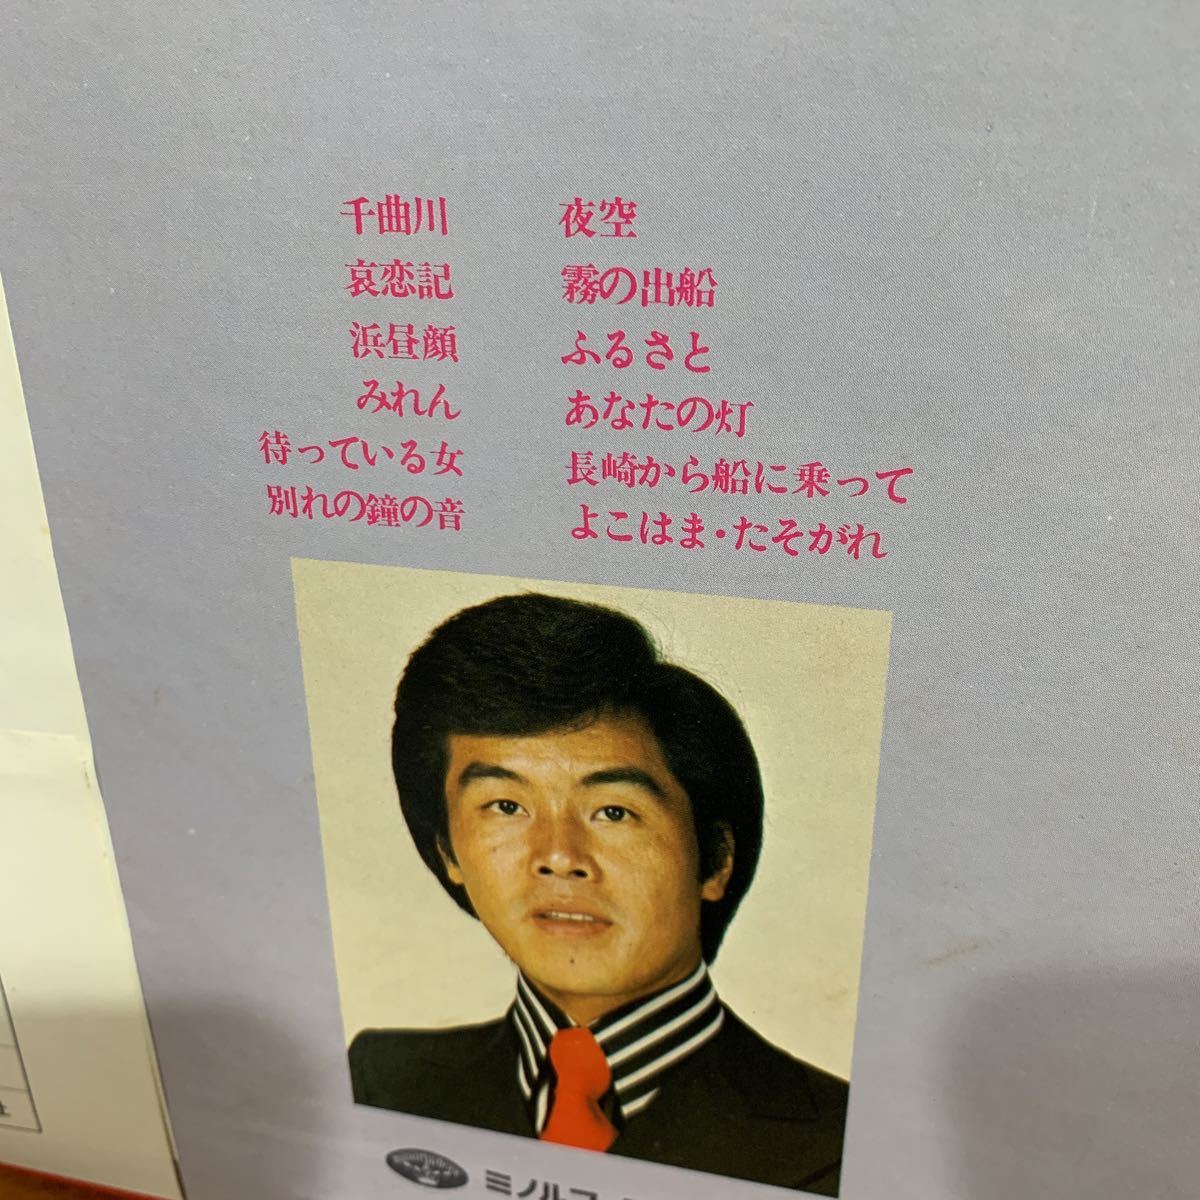 千曲川
哀恋記
浜昼顔
みれん
待っている女
別れの鐘の音
夜空
霧の出船
ふるさと
あなたの灯
長崎から船に乗って
よこはま・たそがれ
ミノルフ